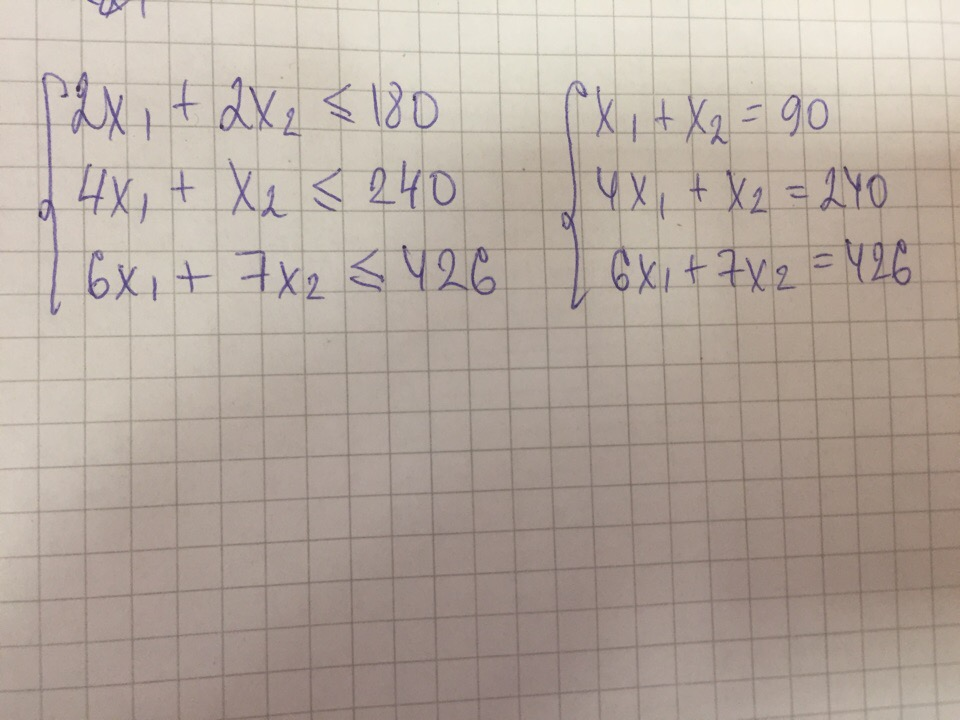 2x₁ + 2x₂ ≤ 180
4x₁ + x₂ ≤ 240
6x₁ + 7x₂ ≤ 426
x₁ + x₂ = 90
4x₁ + x₂ = 240
6x₁ + 7x₂ = 426